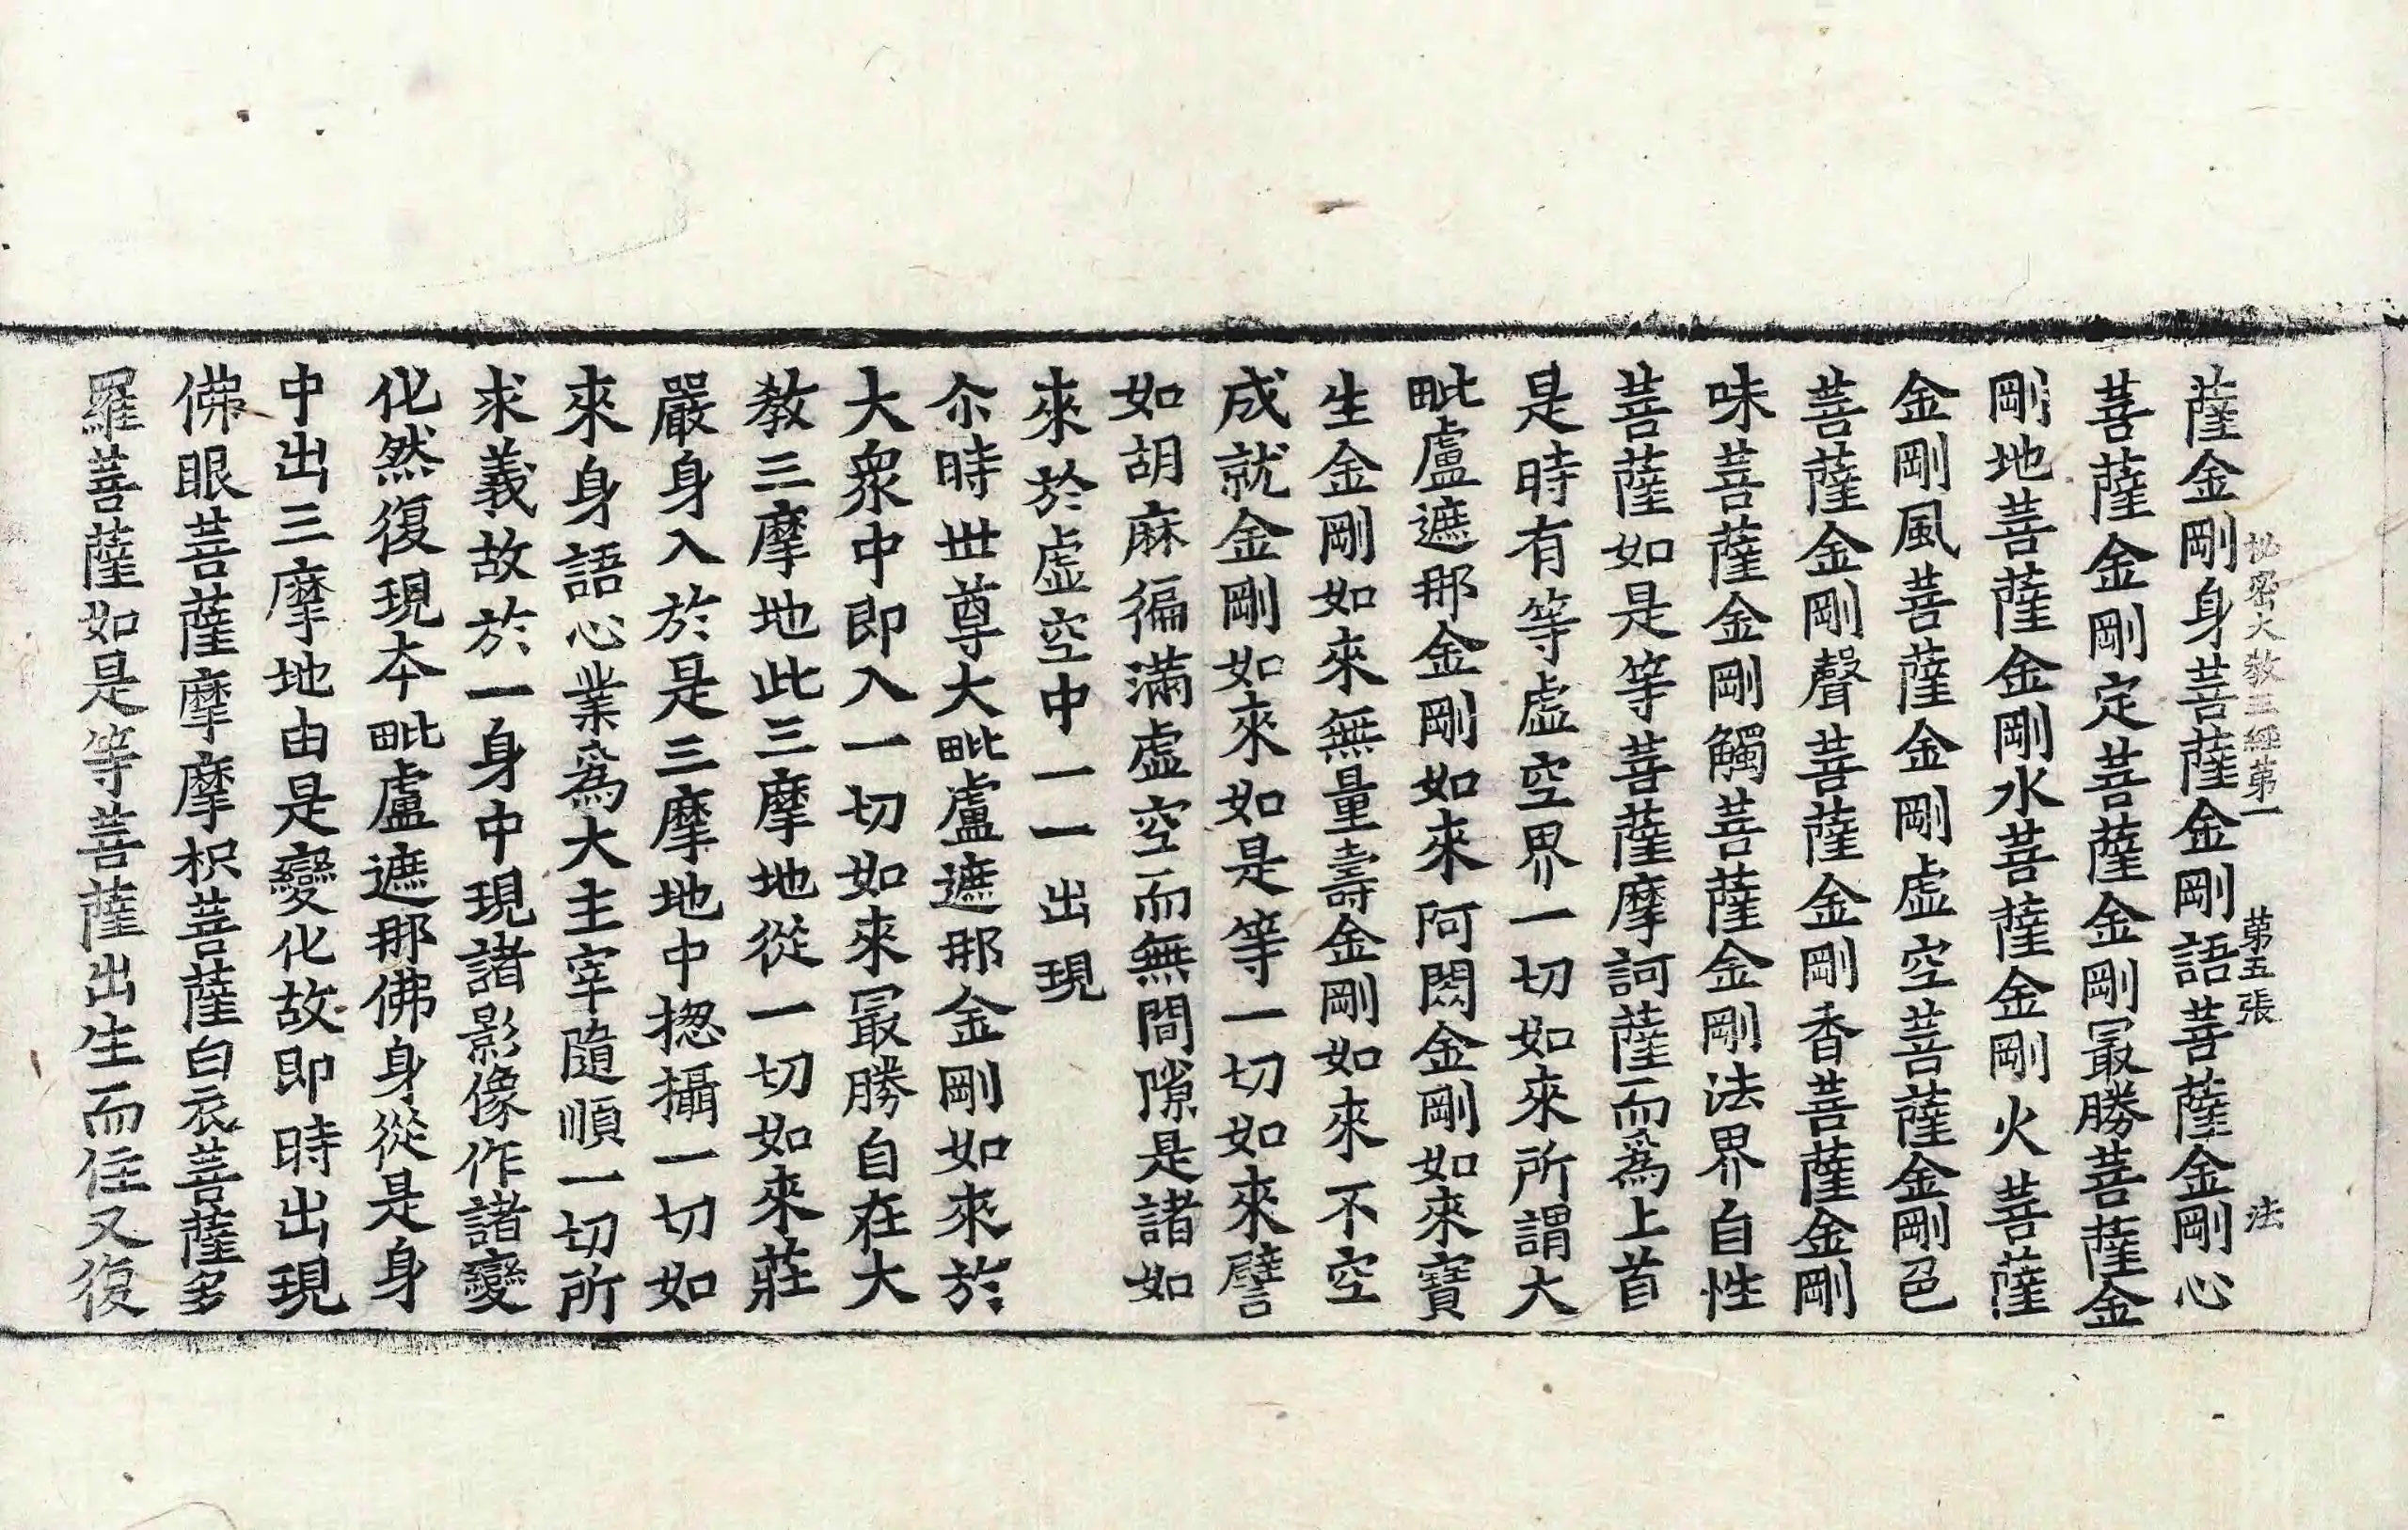 秘密大教王經第一　第五張　法
薩金剛身菩薩金剛語菩薩金剛心
菩薩金剛定菩薩金剛㝡勝菩薩金
剛地菩薩金剛水菩薩金剛火菩薩
金剛風菩薩金剛虛空菩薩金剛色
菩薩金剛聲菩薩金剛香菩薩金剛
味菩薩金剛觸菩薩金剛法界自性
菩薩如是等菩薩摩訶薩而為上首
是時有等虛空界一切如來所謂大
毗盧遮那金剛如來阿閦金剛如來寶
生金剛如來無量壽金剛如來不空
成就金剛如來如是等一切如來譬
如胡麻徧滿虛空而無間隙是諸如
來於虛空中一一出現
尒時世尊大毗盧遮那金剛如來於
大衆中即入一切如來㝡勝自在大
教三摩地此三摩地從一切如來莊
嚴身入於是三摩地中揔攝一切如
來身語心業為大主宰隨順一切所
求義故於一身中現諸影像作諸變
化然復現本毗盧遮那佛身從是身
中出三摩地由是變化故即時出現
佛眼菩薩摩摩枳菩薩白衣菩薩多
羅菩薩如是等菩薩出生而住又復